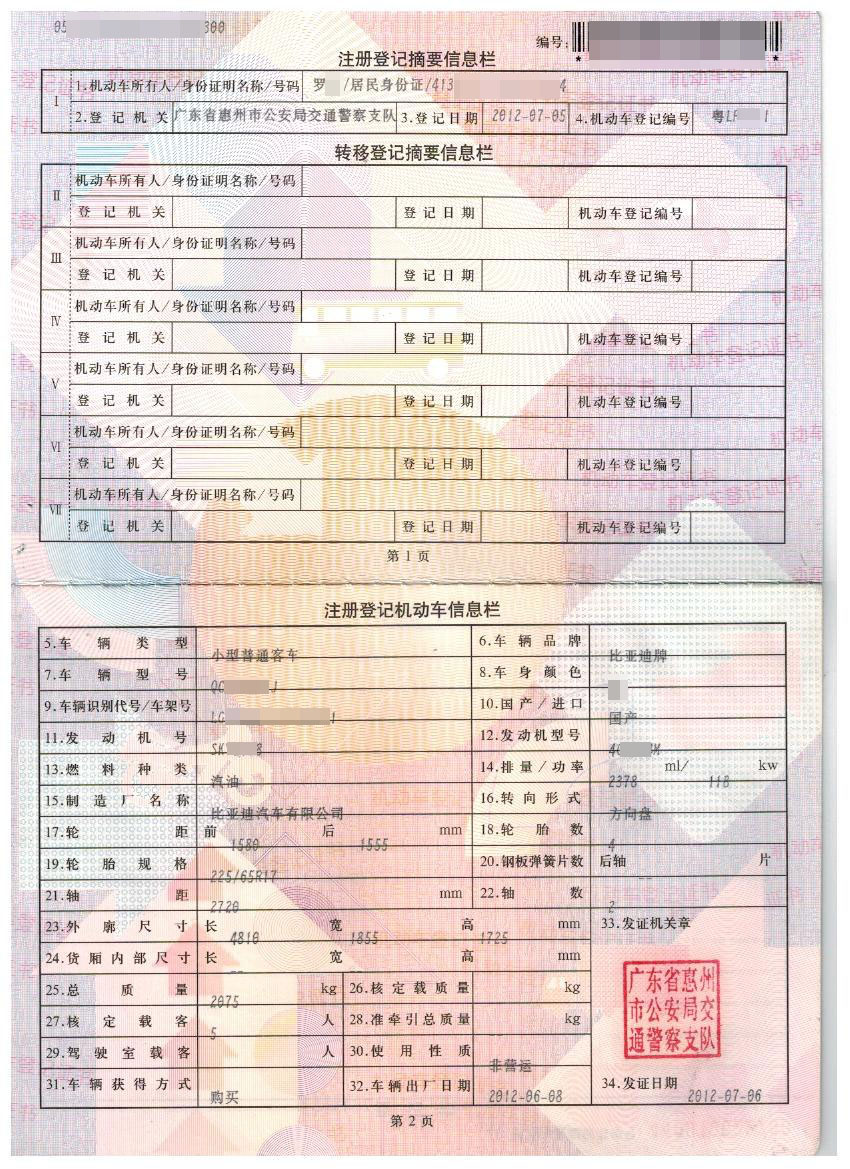 05 300
编号:
* *
注册登记摘要信息栏
I 1.机动车所有人/身份证明名称/号码 罗 /居民身份证/413 4
2.登记机关 广东省惠州市公安局交通警察支队 3.登记日期 2012-07-05 4.机动车登记编号 粤L
转移登记摘要信息栏
II 机动车所有人/身份证明名称/号码
登记机关 登记日期 机动车登记编号
III 机动车所有人/身份证明名称/号码
登记机关 登记日期 机动车登记编号
IV 机动车所有人/身份证明名称/号码
登记机关 登记日期 机动车登记编号
V 机动车所有人/身份证明名称/号码
登记机关 登记日期 机动车登记编号
VI 机动车所有人/身份证明名称/号码
登记机关 登记日期 机动车登记编号
VII 机动车所有人/身份证明名称/号码
登记机关 登记日期 机动车登记编号
第1页
注册登记机动车信息栏
5.车辆类型 小型普通客车 6.车辆品牌 比亚迪牌
7.车辆型号 QC J 8.车身颜色
9.车辆识别代号/车架号 LG 10.国产/进口 国产
11.发动机号 12.发动机型号
13.燃料种类 汽油 14.排量/功率 2378 ml/ 118 kw
15.制造厂名称 比亚迪汽车有限公司 16.转向形式 方向盘
17.轮距 前 1580 后 1555 mm 18.轮胎数 4
19.轮胎规格 225/65R17 20.钢板弹簧片数 后轴 片
21.轴距 2720 mm 22.轴数 2
23.外廓尺寸 长 4810 宽 1855 高 1725 mm 33.发证机关章
24.货厢内部尺寸 长 宽 高 mm
25.总质量 2075 kg 26.核定载质量 kg
27.核定载客 5 人 28.准牵引总质量 kg
29.驾驶室载客 人 30.使用性质 非营运
31.车辆获得方式 购买 32.车辆出厂日期 2012-06-08 34.发证日期 2012-07-06
广东省惠州
市公安局交
通警察支队
第2页